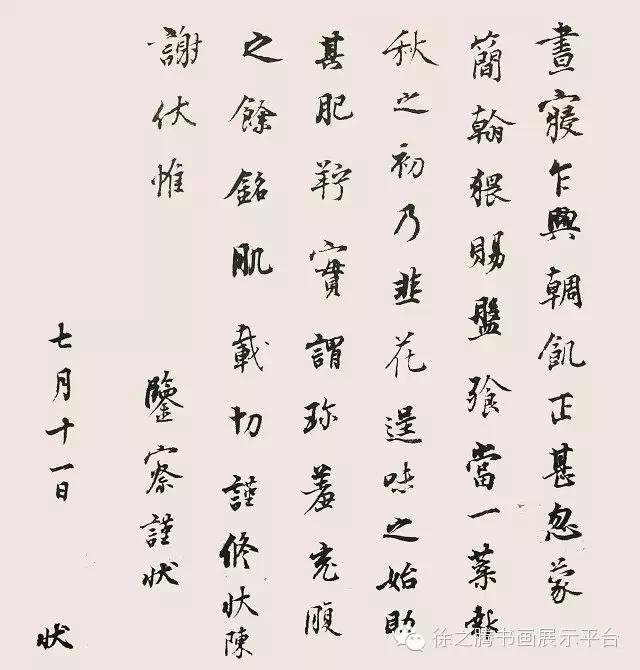 晝寢乍興輖飢正甚忽蒙
簡翰猥賜盤飧當一葉報
秋之初乃韭花逞味之始助
其肥羜實謂珍羞充腹
之餘銘肌載切謹修狀陳
謝伏惟
鑒察謹狀
七月十一日
狀
徐之腾书画展示平台